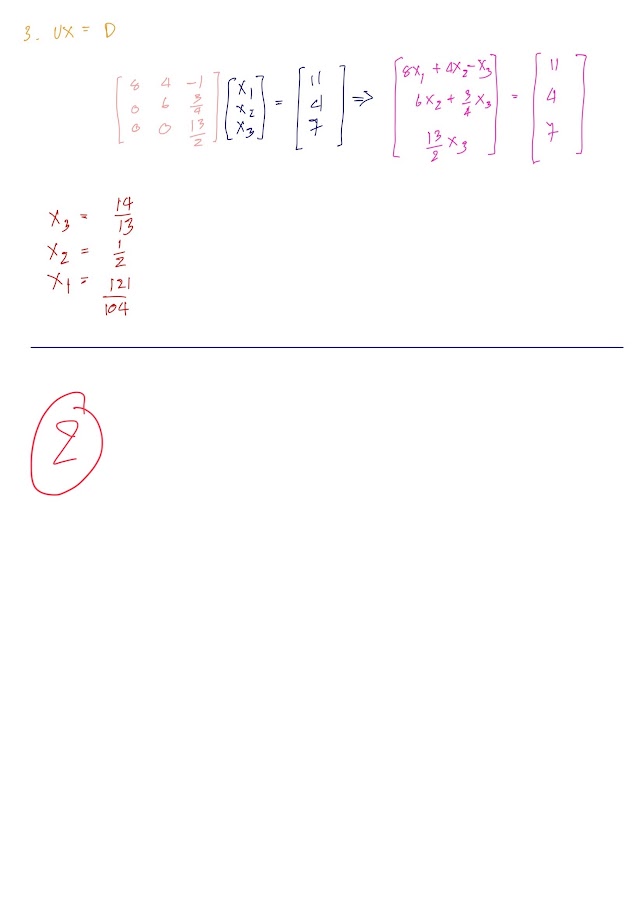 3. UX = D
[8 4 -1; 0 6 3/4; 0 0 13/2] [x₁; x₂; x₃] = [11; 4; 7] ⇒ [8x₁ + 4x₂ - x₃; 6x₂ + 3/4 x₃; 13/2 x₃] = [11; 4; 7]
x₃ = 14/13
x₂ = 1/2
x₁ = 121/104
2